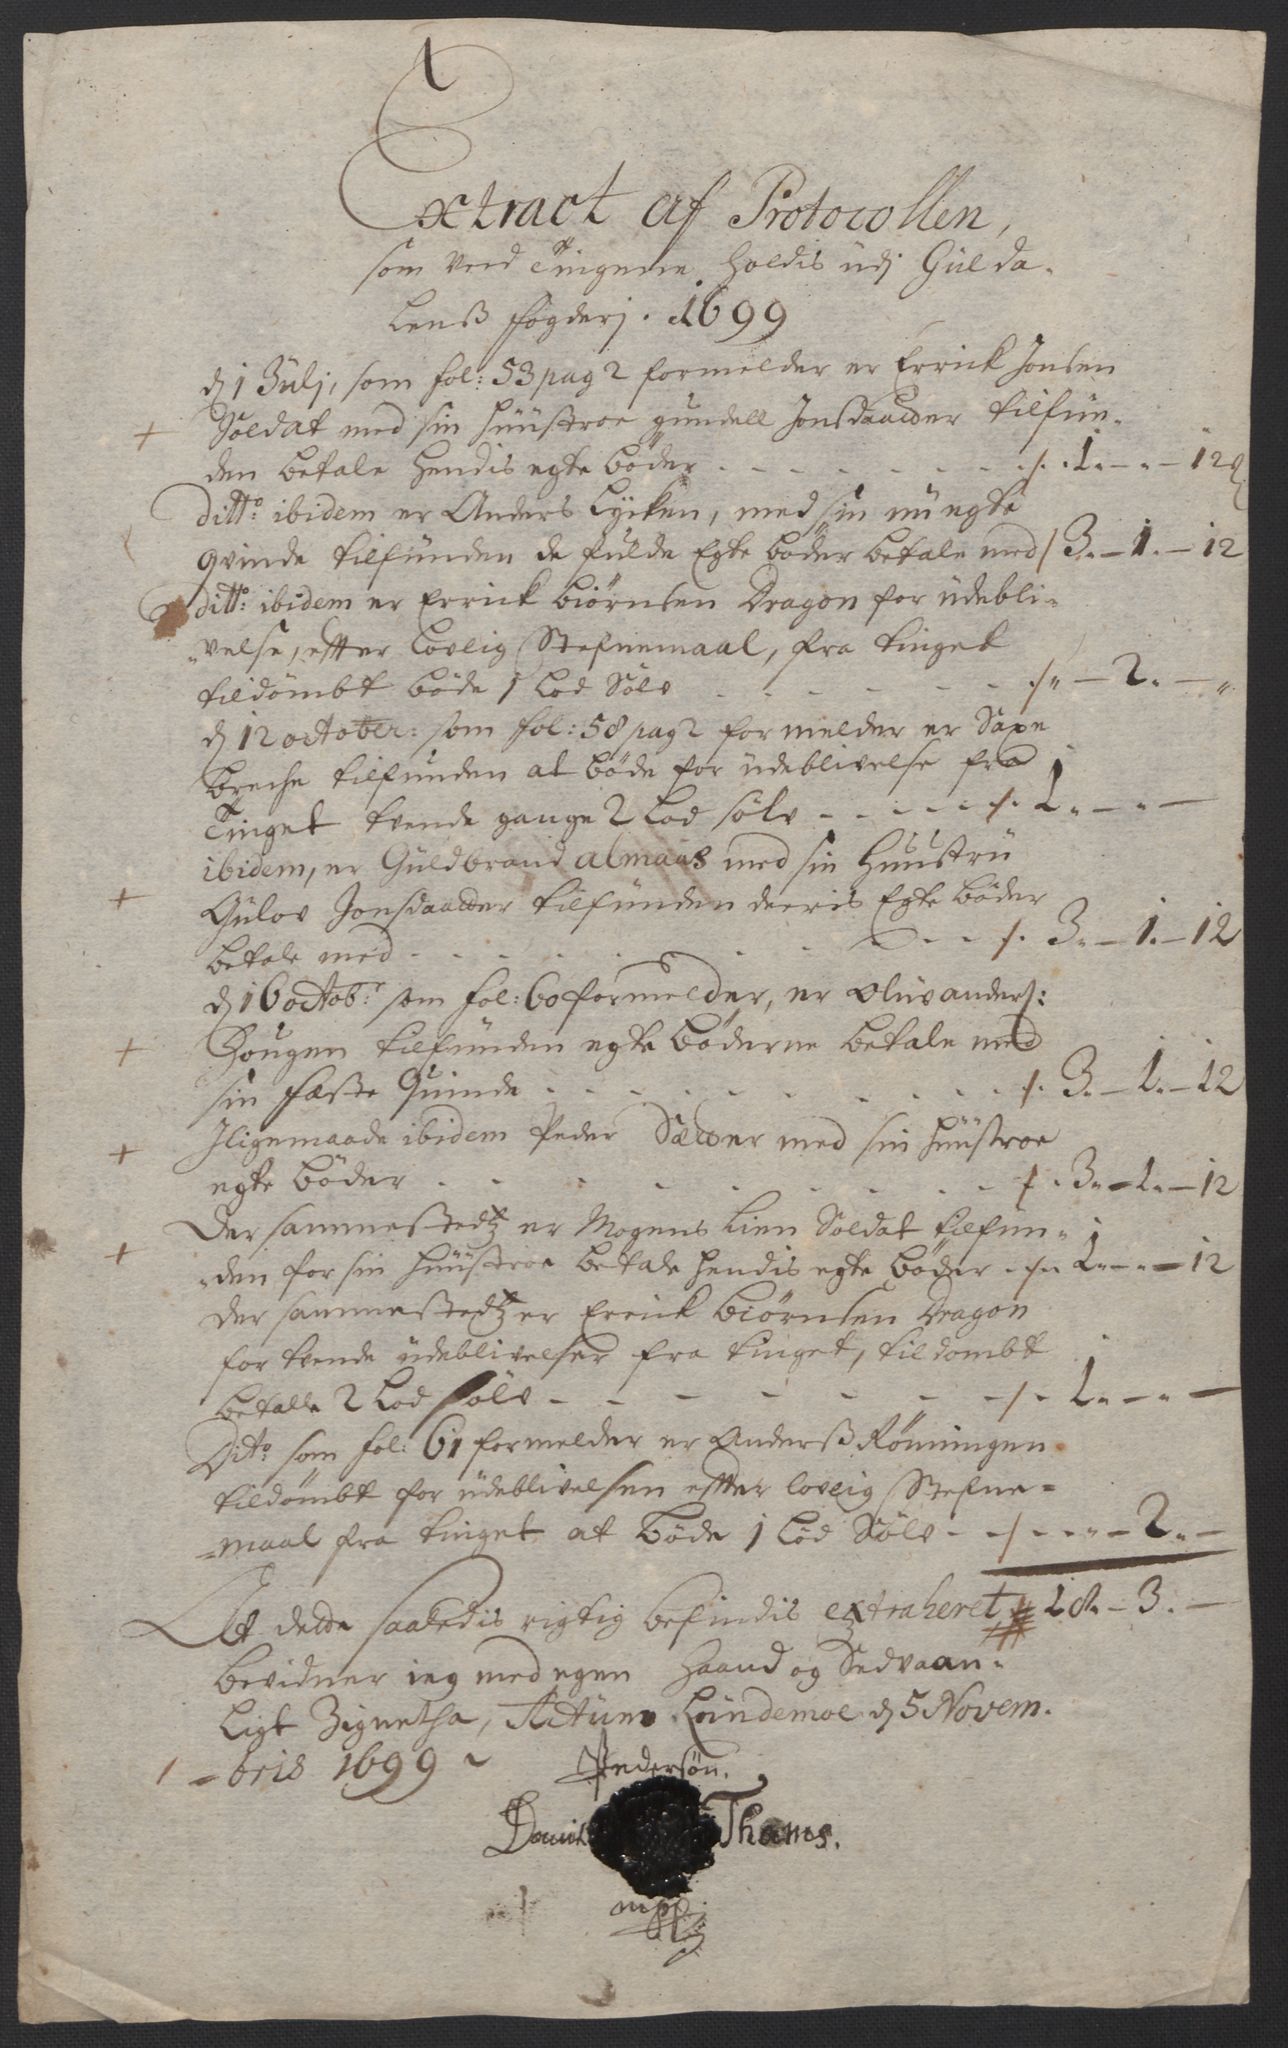 Extract af Protocollen,
som ved Tingene holdis udj Gulda-
lenß fogderj. 1699
d 1 Julj, som fol: 53 pag 2 formelder er Errick Jonsen
+ Soldat med sin huustroe gundell Jonsdaatter tilfun-
den betale hendis egte bøder - - - - - ./. 1. - - 12 ß
ditto: ibidem er Anders Lycken, med sin nu egte
qvinde tilfunden de fulde Egte bøder betale med / 3. - 1. - 12
ditto: ibidem er Errick biørnsen Dragon for udebli-
velse, efter lovlig Stefnemaal, fra tinget
tildømbt bøde 1 Lod Sølv - - - - - ./. - 2. - "
d 12 october: som fol: 58 pag 2 formelder er Saxe
breche tilfunden at bøde for udeblivelse fra
Tinget tvende gange 2 Lod sølv - - - - ./. 1. - - -
ibidem, er Guldbrand almaas med sin Huustru
+ Gulov Jonsdaatter tilfunden deris Egte bøder
betale med - - - - - ./. 3. - 1. - 12
d 16 octobr: som fol: 60 formelder, er Oluv anders:
+ Hougen tilfunden egte bøderne betale med
sin fæste Quinde - - - - - ./. 3. - 1. - 12
+ Iligemaade ibidem Peder Sætter med sin huustroe
egte bøder - - - - - ./. 3. - 1. - 12
Der sammestedtz er Mogens Lien Soldat tilfun-
+ den for sin huustroe betale hendis egte bøder ./. 1. - - 12
Der sammestedtz er Errick biørnsen Dragon
for tvende udeblivelser fra tinget, tildømbt
betale 2 Lod sølv - - - - - ./. 1. - - -
Dito som fol: 61 formelder er Anderß Rønningen
tildømbt for udeblivelsen efter lovlig Stefne-
maal fra tinget at bøde 1 Lod Sølv - ./. - - - 2. -
At dette saaledis rigtig befindis extraheret 18. - 3. -
bevidner ieg med egen Haand og Sedvaan-
Ligt Zignetha, Actum Lundemoe d 5 Novem-
bris 1699
Pedersøn.
Thams.
mpp